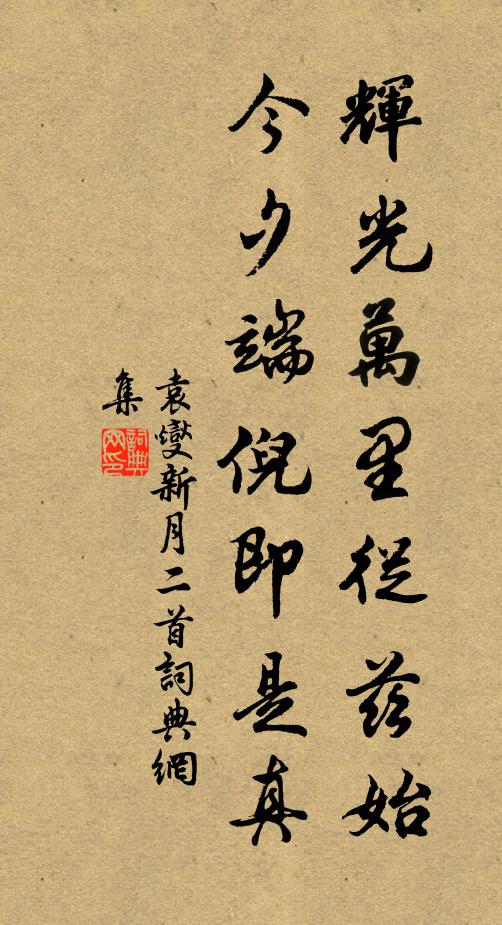 輝光萬里從茲始
今夕端倪即是真
袁燮新月二首詞典網
集
詞典網印